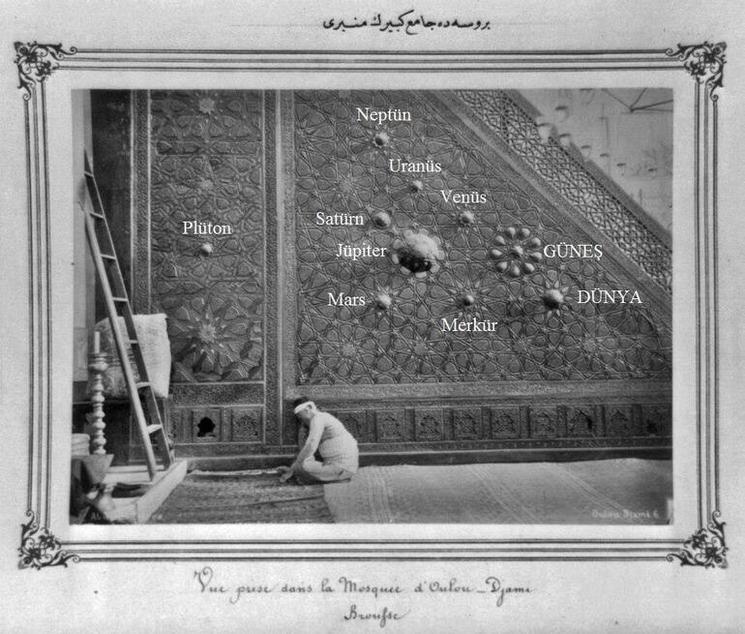 بروسه ده جامع كبيرك منبرى
Neptün
Uranüs
Venüs
Plüton
Satürn
Jüpiter
GÜNEŞ
Mars
DÜNYA
Merkür
Oulou Djami 6
Vue prise dans la Mosquée d'Oulou_Djami
Brousse